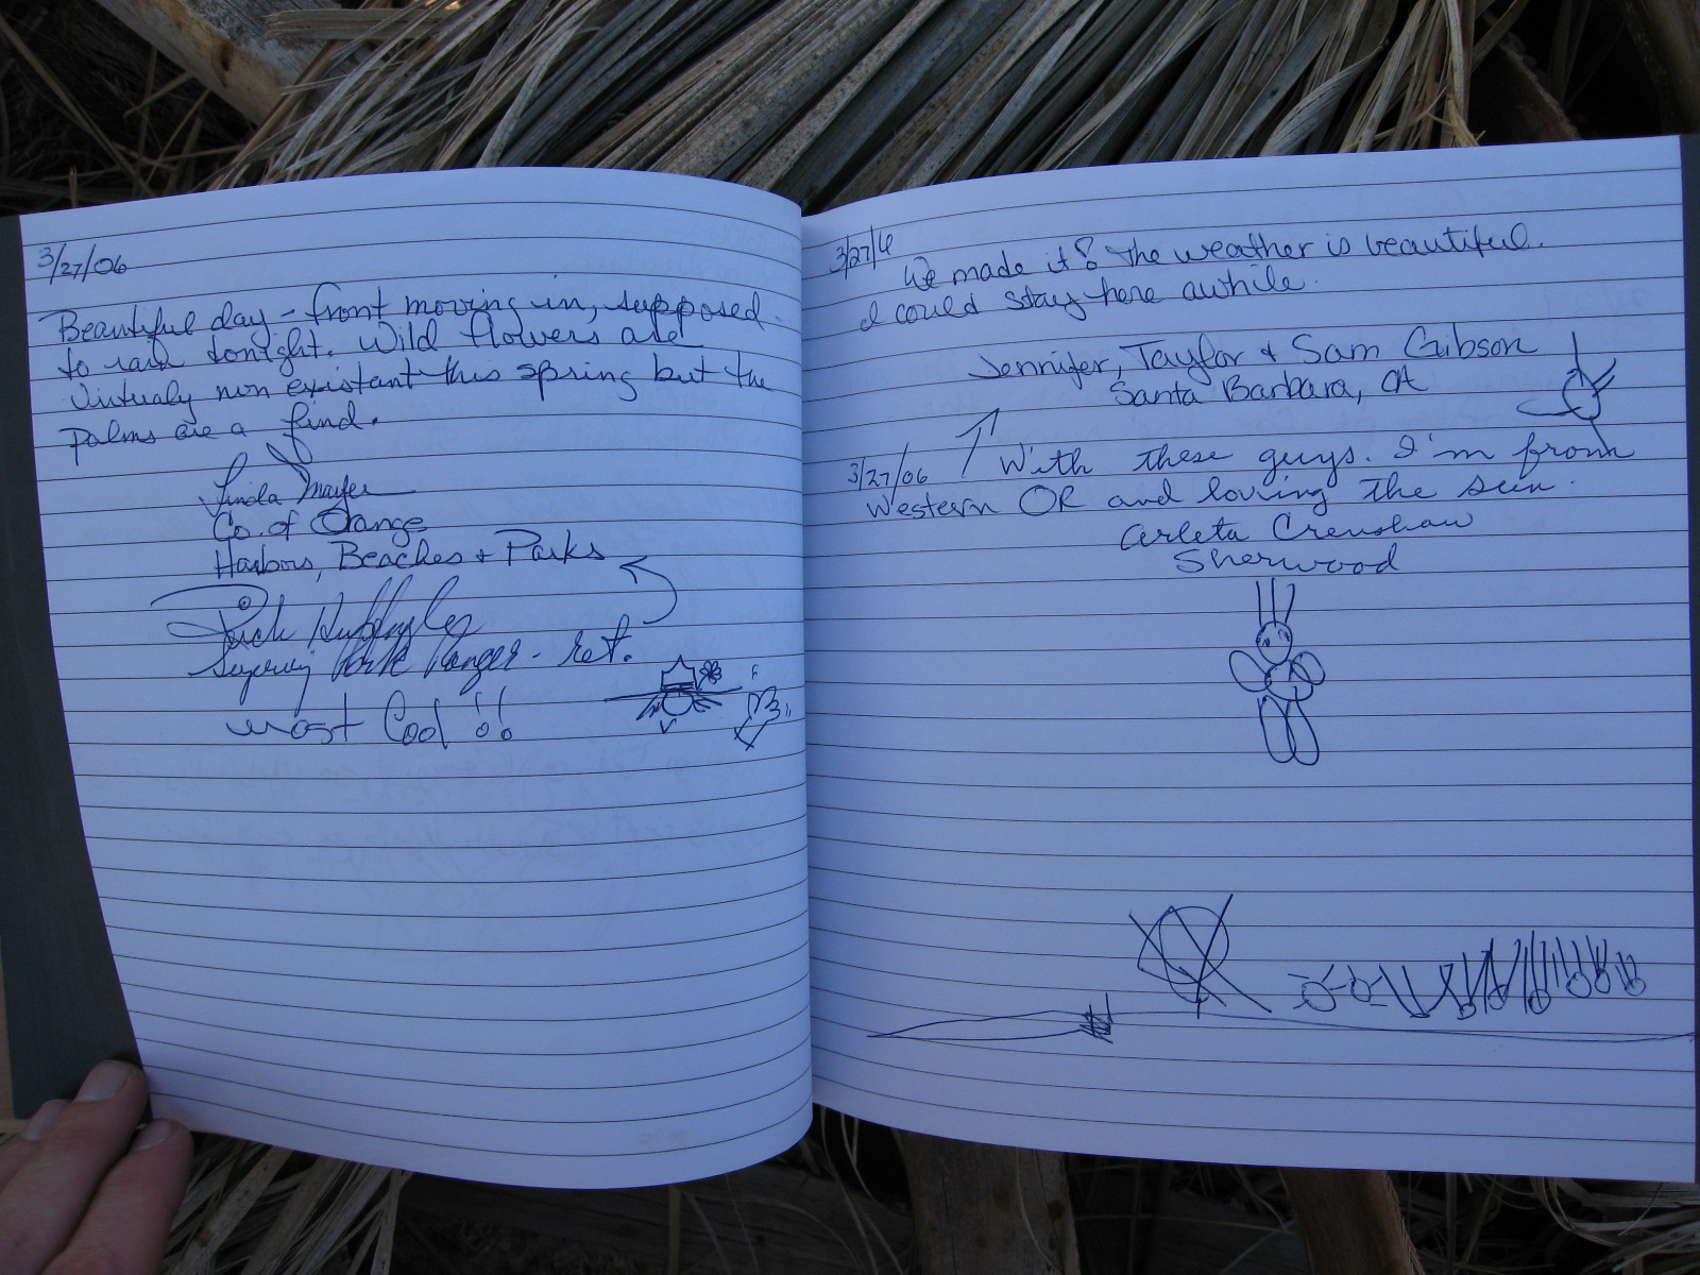 3/27/06
Beautiful day - front moving in, supposed
to rain tonight. Wild flowers are
virtualy non existant this spring but the
palms are a find.
Linda Mayer
Co. of Orange
Harbors, Beaches + Parks
Park Ranger - ret.
most Cool!!
3/27/6
We made it! The weather is beautiful.
I could stay here awhile.
Jennifer, Taylor + Sam Gibson
Santa Barbara, CA
3/27/06 With these guys. I'm from
Western OR and loving the sun.
Arleta Crenshaw
Sherwood